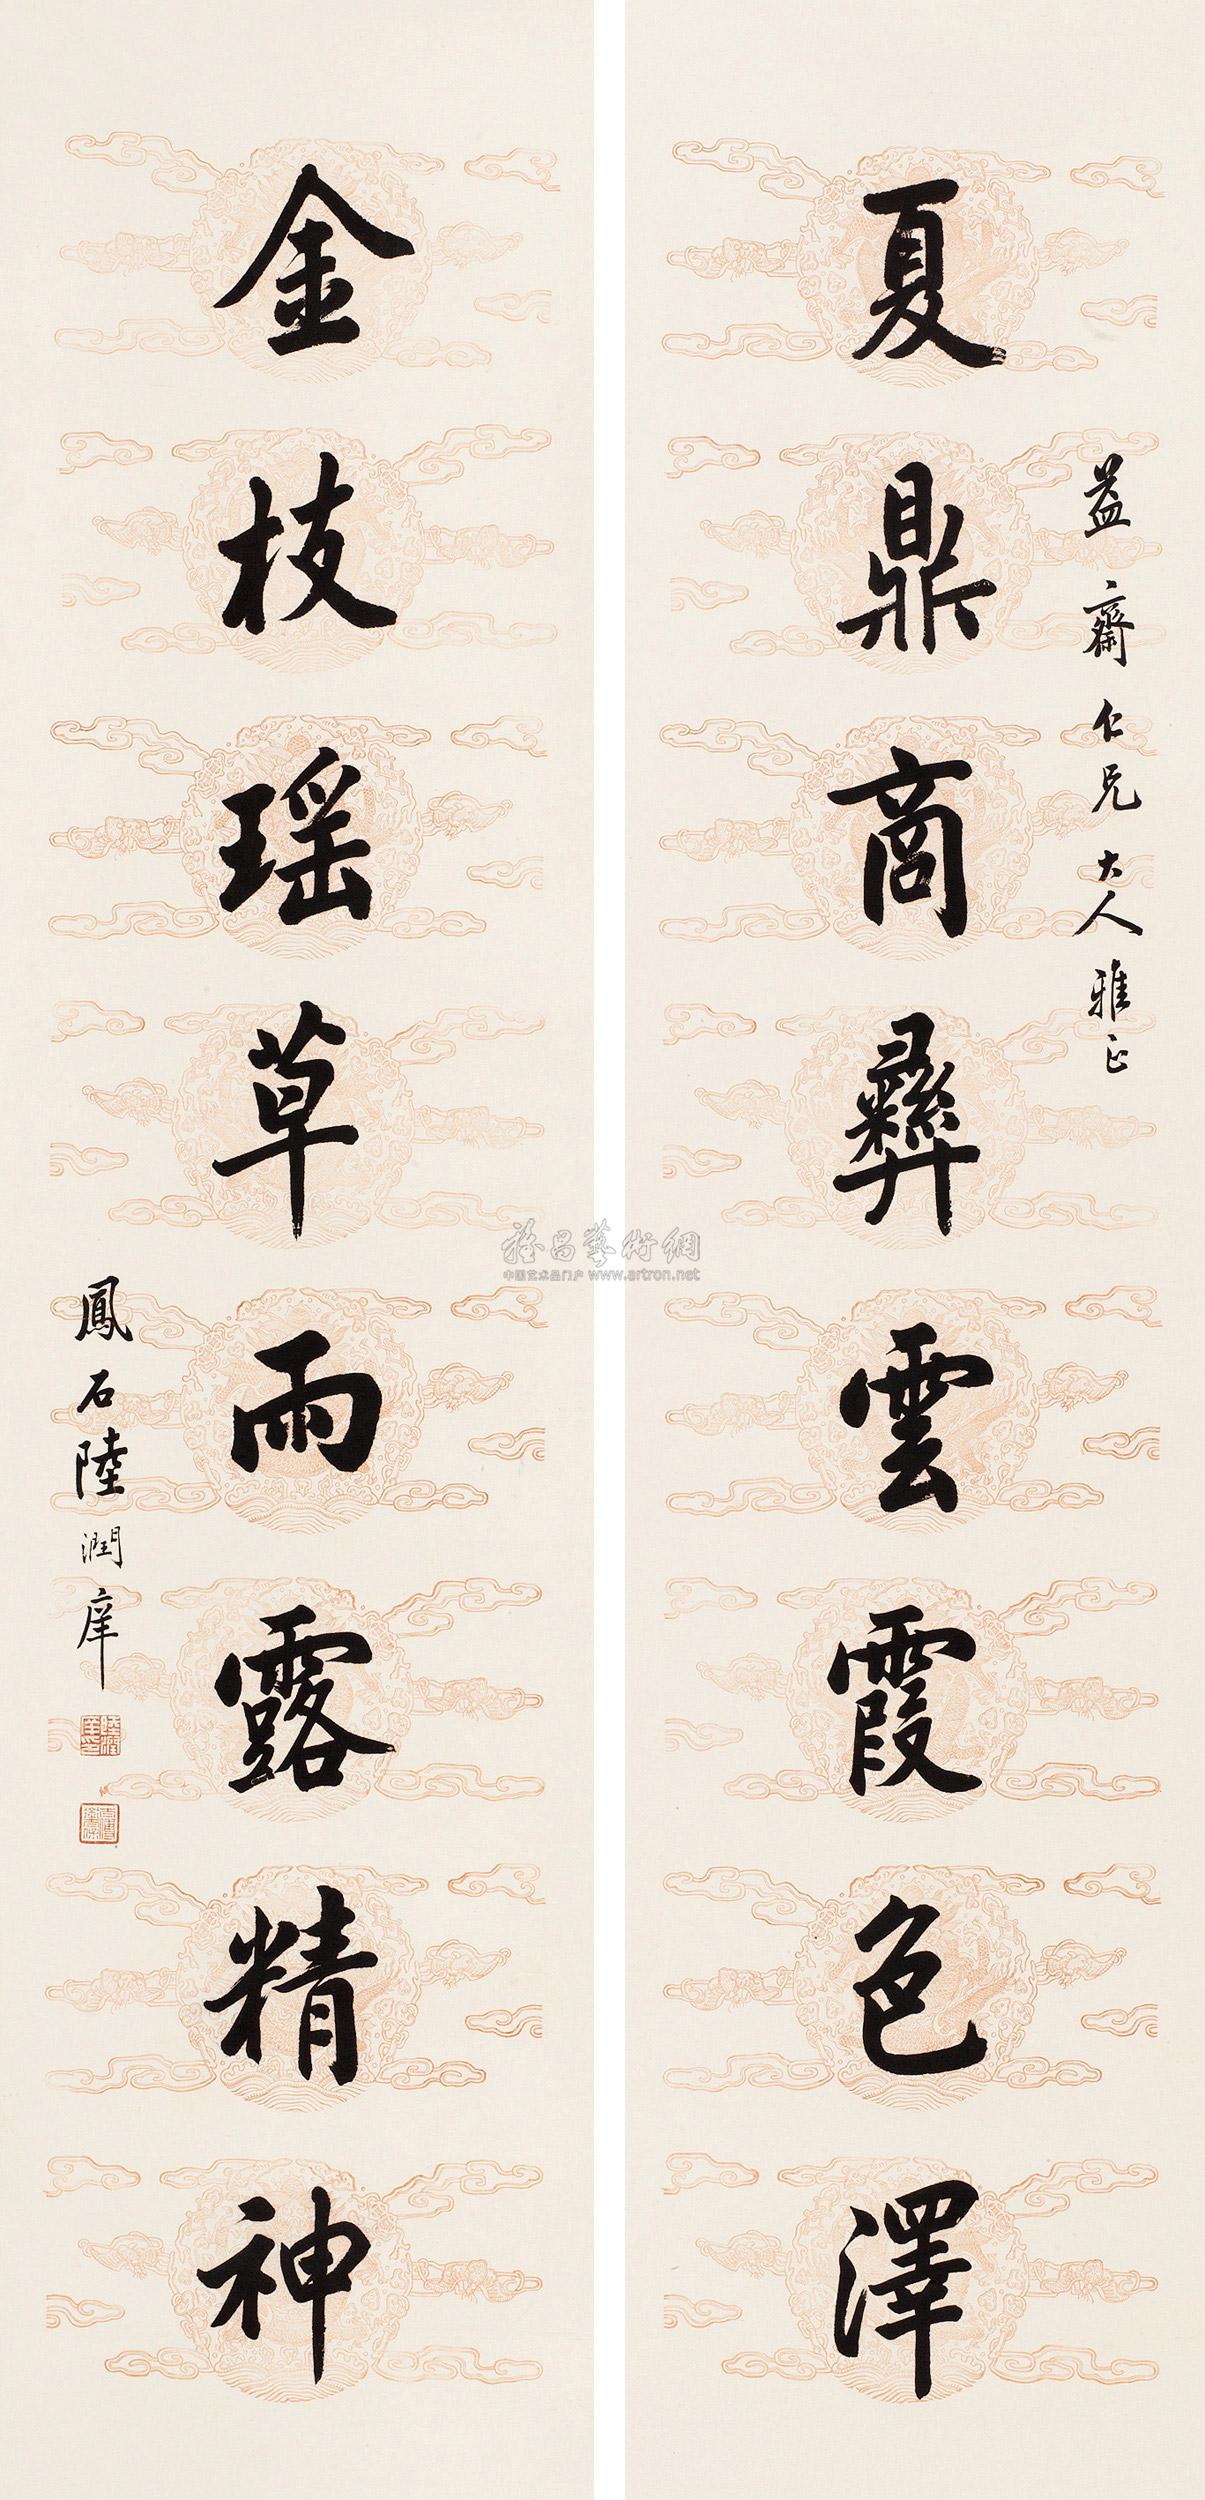 夏鼎商彝雲霞色澤
益齋仁兄大人雅正
金枝瑶草雨露精神
鳳石陸潤庠
雅昌藝術網
中国艺术品门户 www.artron.net